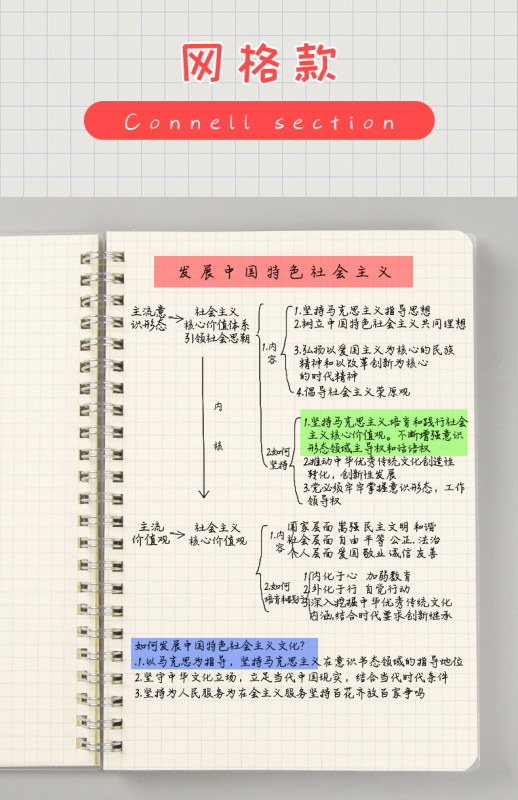 网格款
Connell section
发展中国特色社会主义
主流意
识形态
社会主义
核心价值体系
引领社会思朝
1.内
容
1.坚持马克思主义指导思想
2.树立中国特色社会主义共同理想
3.弘扬以爱国主义为核心的民族
精神和以改革创新为核心
的时代精神
4.倡导社会主义荣原观
内
核
2.如何
坚持
1.坚持马克思主义.培育和践行社会
主义核心价值观。不断增强意识
形态领域主导权和话语权
2.推动中华优秀传统文化创造性
转化，创新性发展
3.党必须牢牢掌握意识形态，工作
领导权
主流
价值观
社会主义
核心价值观
1.内
容
国家层面 富强 民主 文明 和谐
社会层面 自由 平等 公正.法治
个人层面 爱国 敬业 诚信 友善
2.如何
培育和践行
1内化于心 加弱教育
2.外化于行 自觉行动
3深入挖掘中华优秀传统文化
内涵,结合时代要求创新继承
如何发展中国特色社会主义文化?
.1.以马克思为指导，坚持马克思主义在意识书态领域的指导地位
2.坚守中华文化立场，立足当代中国现实，结合当代时代条件
3.坚持为人民服务为在会主义服务坚持百花齐放百家争吗